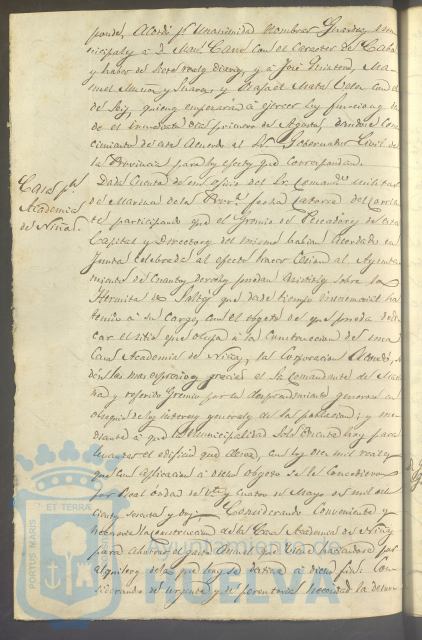 ponde, Acordó pr. Unanimidad nombrar Guardas
cipales á D. Man. Cano con el Caracter de Cabo
y haber de siete reales diarios, y á José Quintero, Ma-
nuel Macias y Suarez, y Rafael Mata Vela con el
de Seis, quienes empezarán á ejercer sus funciones
el inmediato dia primero de Agosto, dandose Cono-
cimiento de este Acuerdo al Sr. Gobernador Civil de
la Provincia para los efectos que correspondan.
Casa pa.
Academia
de Niñas.
Dada Cuenta de un oficio del Sr. Comante. Militar
de Marina de la Prova. fecha Catorce del Corrien-
te participando que el Gremio de Pescadores de esta
Capital y Directores del mismo habian Acordado en
Junta Celebrada al efecto hacer Cesion al Ayunta-
miento de Cuantos derechos puedan asistirles sobre la
Hermita de Saltes que desde tiempo inmemorial ha
tenido á su Cargo, con el objeto de que pueda dedi-
car el sitio que ocupa á la Construccion de una
Casa Academia de Niñas, la Corporacion Acordó, se
den las mas expresivas gracias al Sr. Comandante de Mari-
na y referido Gremio por su desprendimiento generoso en
obsequio de los intereses generales de la poblacion; y me-
diante á que la Municipalidad solo Cuenta hoy para
levantar el edificio que desea, con los diez mil reales
que con aplicacion á dicho objeto se le Concedieron
por Real orden de Vte. y Cuatro de Mayo de mil ocho
cientos sesenta y dos; Considerando Conveniente y
necesaria la Construccion de la Casa Academia de Niñas
para ahorrar el gasto Anual que viene haciendose por
alquileres de la que hoy se destina á dicho fin: Con-
siderando de urgente y de perentoria necesidad la
PORTUS MARIS ET TERRAE
Ayuntamiento de
HUELVA